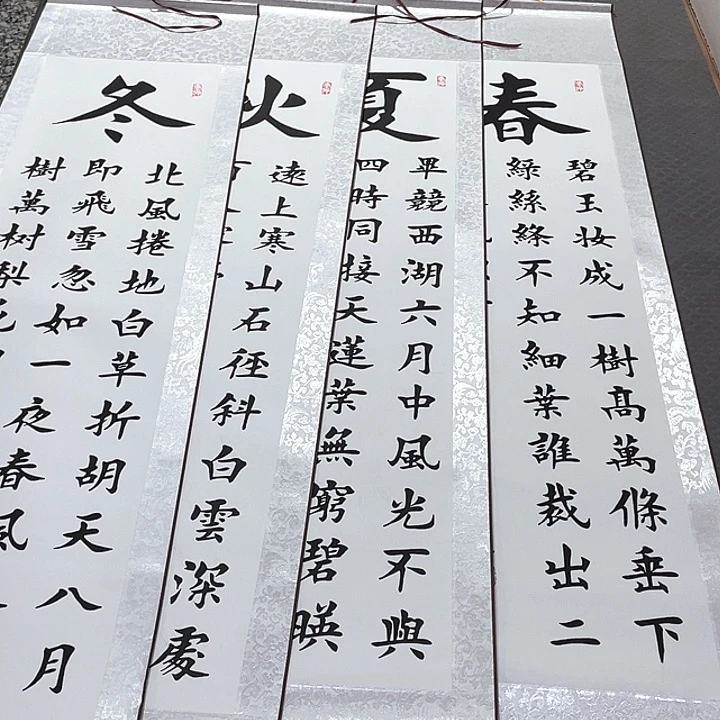 春
碧玉妆成一樹高萬條垂下
綠絲絛不知細葉誰裁出二
夏
畢競西湖六月中風光不與
四時同接天蓮葉無窮碧暎
遠上寒山石徑斜白雲深處
冬
北風捲地白草折胡天八月
即飛雪忽如一夜春風
樹萬树梨